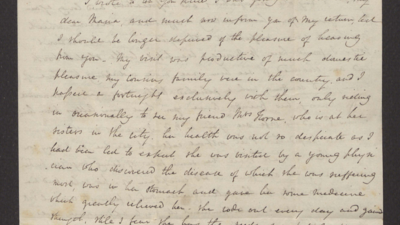 I wrote to
dear Maria and must now inform you of my return lest
I should be longer deprived of the pleasure of hearing
from you. My visit was productive of much domestic
pleasure my cousins family were in the country, and I
passed a fortnight exclusively with them only riding
in occasionally to see my friend Mrs Thorne, who is at her
sisters in the city, her health was not so desperate as I
had been led to expect she was visited by a young physi
cian who discovered the disease of which she was suffering
most was in her stomach and gave her some medicine
which greatly relieved her. She rode out every day and gain'd
strength. Still I fear she has the